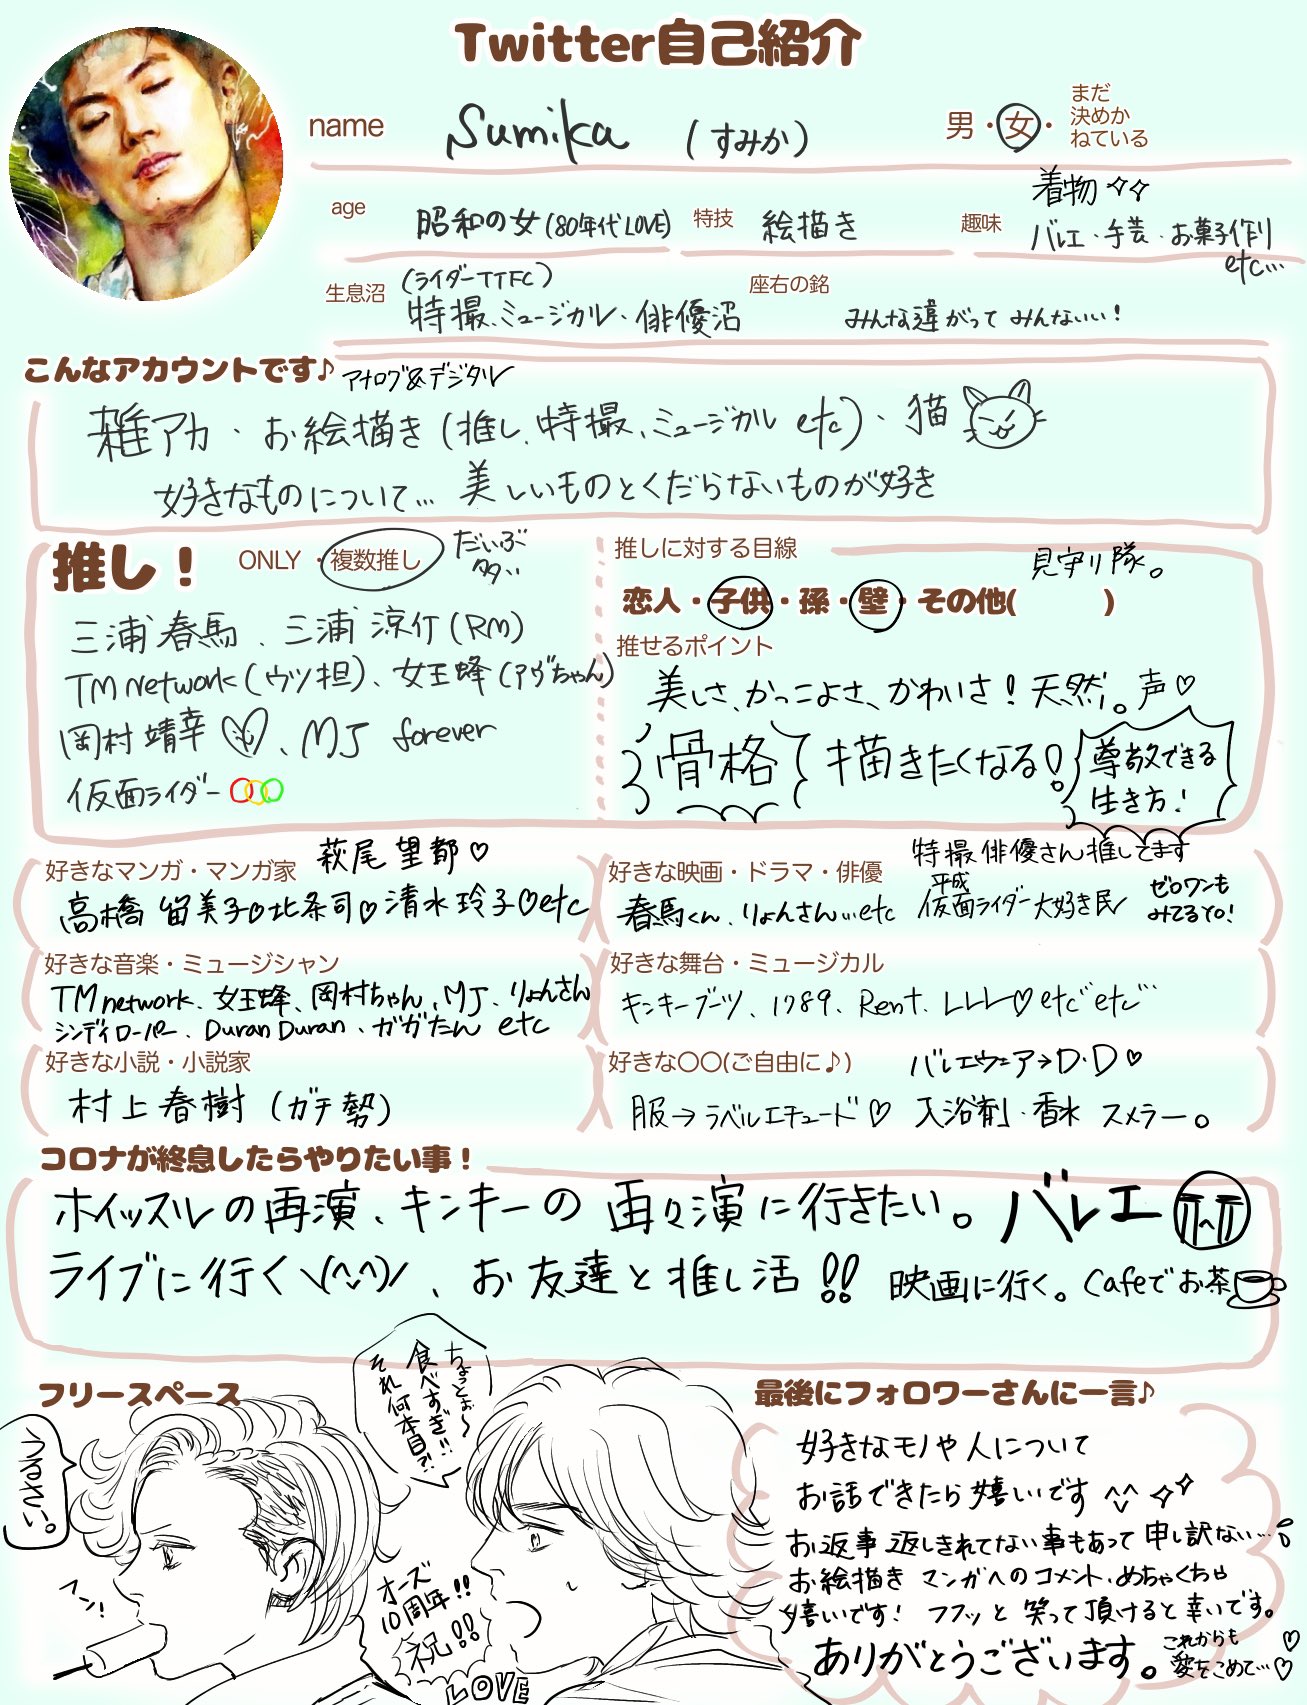 Twitter自己紹介
name Sumika (すみか) 男・女・まだ決めかねている
age 昭和の女(80年代LOVE) 特技 絵描き 趣味 着物 バレエ・手芸・お菓子作り etc...
生息沼 (ライダーTTFC) 特撮、ミュージカル・俳優沼 座右の銘 みんな違がって みんないい!
こんなアカウントです♪ アナログ&デジタル
雑アカ・お絵描き(推し、特撮、ミュージカル etc)・猫
好きなものについて… 美しいものとくだらないものが好き
推し! ONLY・複数推し だいぶ多い
三浦春馬、三浦涼介(RM)
TM network(ウツ担)、女王蜂(アヴちゃん)
岡村靖幸♡、MJ forever
仮面ライダー
推しに対する目線 見守り隊。
恋人・子供・孫・壁・その他( )
推せるポイント
美しさ、かっこよさ、かわいさ!天然。声♡
骨格 描きたくなる! 尊敬できる生き方!
好きなマンガ・マンガ家 萩尾望都♡
高橋留美子♡北条司♡清水玲子♡etc
好きな映画・ドラマ・俳優 特撮俳優さん推してます
春馬くん、りょんさん…etc 平成仮面ライダー大好き民 ゼロワンもみてるYO!
好きな音楽・ミュージシャン
TM network、女王蜂、岡村ちゃん、MJ、りょんさん
シンディローパー、Duran Duran、ガガたん etc
好きな舞台・ミュージカル
キンキーブーツ、1789、Rent、LLL♡etc etc…
好きな小説・小説家
村上春樹(ガチ勢)
好きな〇〇(ご自由に♪) バレエウェア→D・D♡
服→ラベルエチュード♡ 入浴剤・香水 スメラー。
コロナが終息したらやりたい事!
ホイッスルの再演、キンキーの再々演に行きたい。バレエ
ライブに行く\(^^)/、お友達と推し活!! 映画に行く。Cafeでお茶
フリースペース
うるさい。
ヘン!
ちょっとぉ〜
食べすぎ!!
それ何本目?!
オーズ
10周年!!
祝!!
LOVE
最後にフォロワーさんに一言♪
好きなモノや人について
お話できたら嬉しいです^^
お返事返しきれてない事もあって申し訳ない…
お絵描き マンガへのコメント、めちゃくちゃ
嬉いです! フフッと笑って頂けると幸いです。
ありがとうございます。これからも愛をこめて…♡